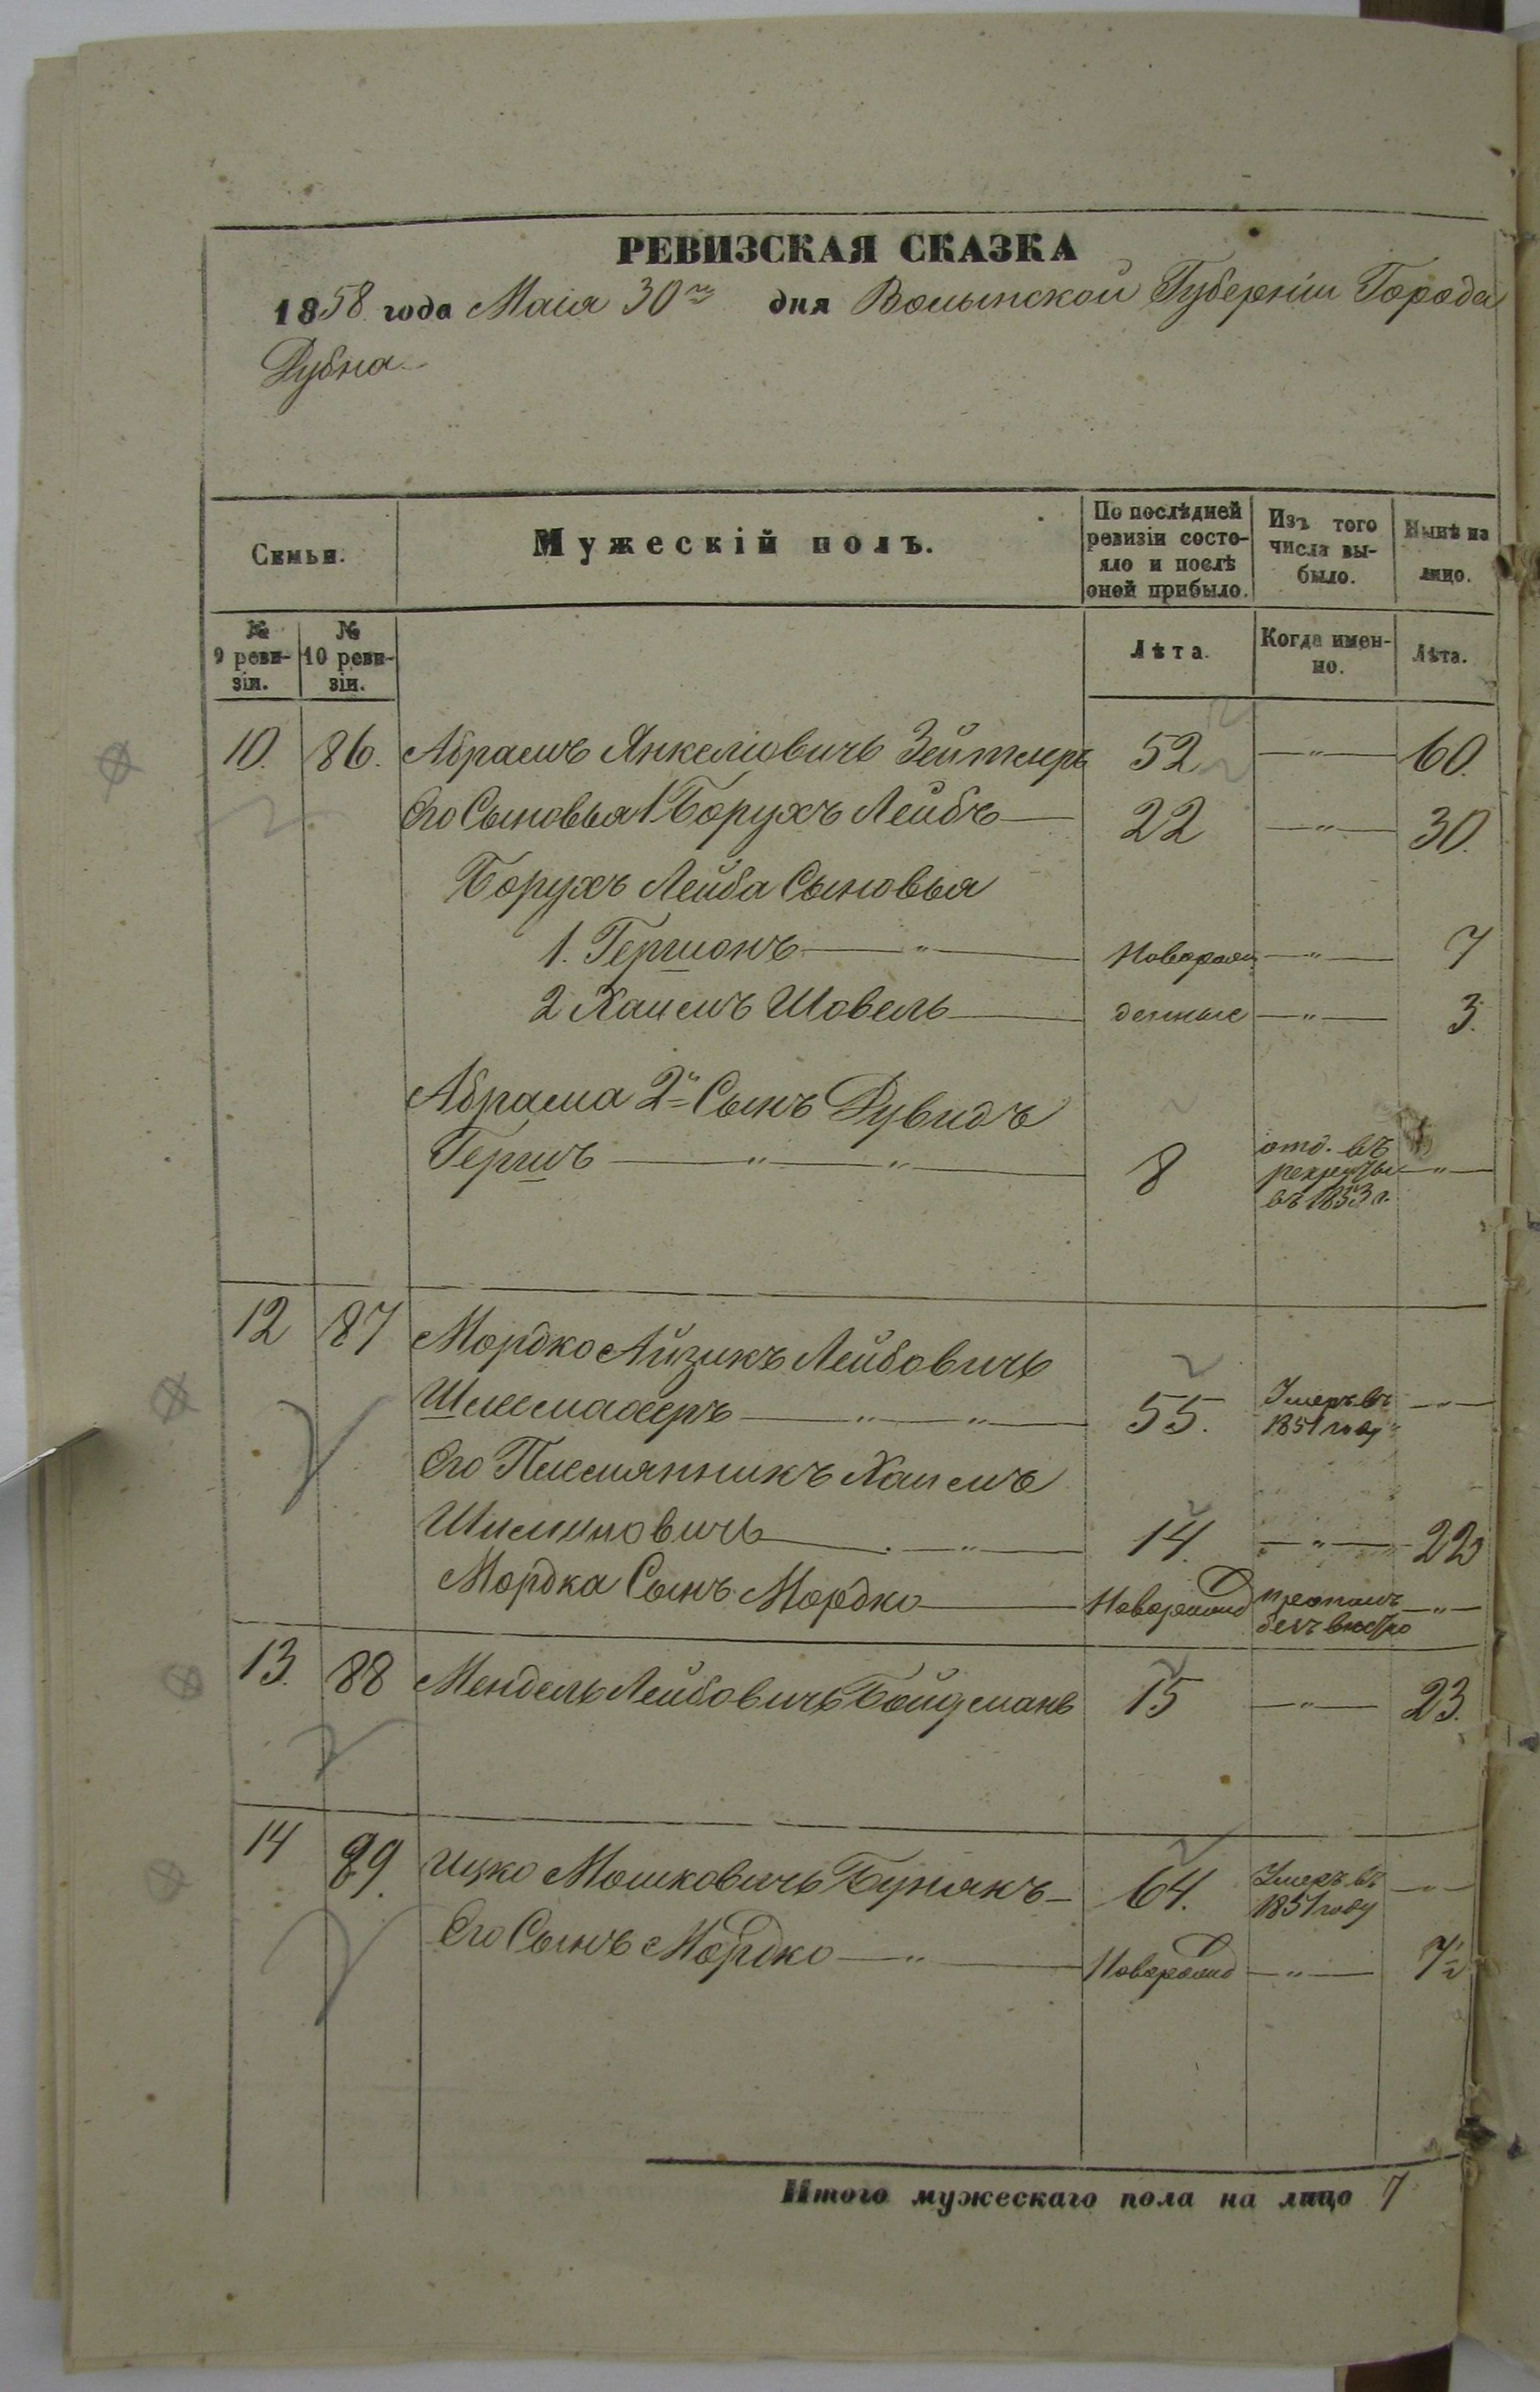 РЕВИЗСКАЯ СКАЗКА
1858 года Маія 30го дня Волынской Губерніи Города
Дубна
Семьи.
Мужескій полъ.
По послѣдней ревизіи состояло и послѣ оней прибыло.
Изъ того числа выбыло.
Нынѣ на лицо.
№ 9 ревизіи.
№ 10 ревизіи.
Лѣта.
Когда именно.
Лѣта.
10. 86. Абрамъ Янкеліовичъ 52 — " — 60.
Его Сыновья 1 Борухъ Лейбъ — 22 — " — 30.
Борухъ Лейба Сыновья
1. Гершонъ — " — Новорож — " — 7
2 Хаимъ Шовель — денные — " — 3.
Абрама 2й Сынъ Дувидъ
Гершъ — " — " — 8 отд. въ рекруты въ 1853 г. — " —
12 87 Мордко Айзикъ Лейбовичъ
— " — " — 55. Умеръ въ 1851 году — " —
Его Племянникъ Хаимъ
Шлиомовичъ — " — 14. — " — 22
Мордка Сынъ Мордко — Новорожд пропалъ безъ вѣстно — " —
13. 88 Мендель Лейбовичъ 15 — " — 23.
14 89. Ицко Мошковичъ Бунякъ — 64. Умеръ въ 1851 году — " —
Его Сынъ Мордко — " — Новорожд — " — 7½
Итого мужескаго пола на лицо 7